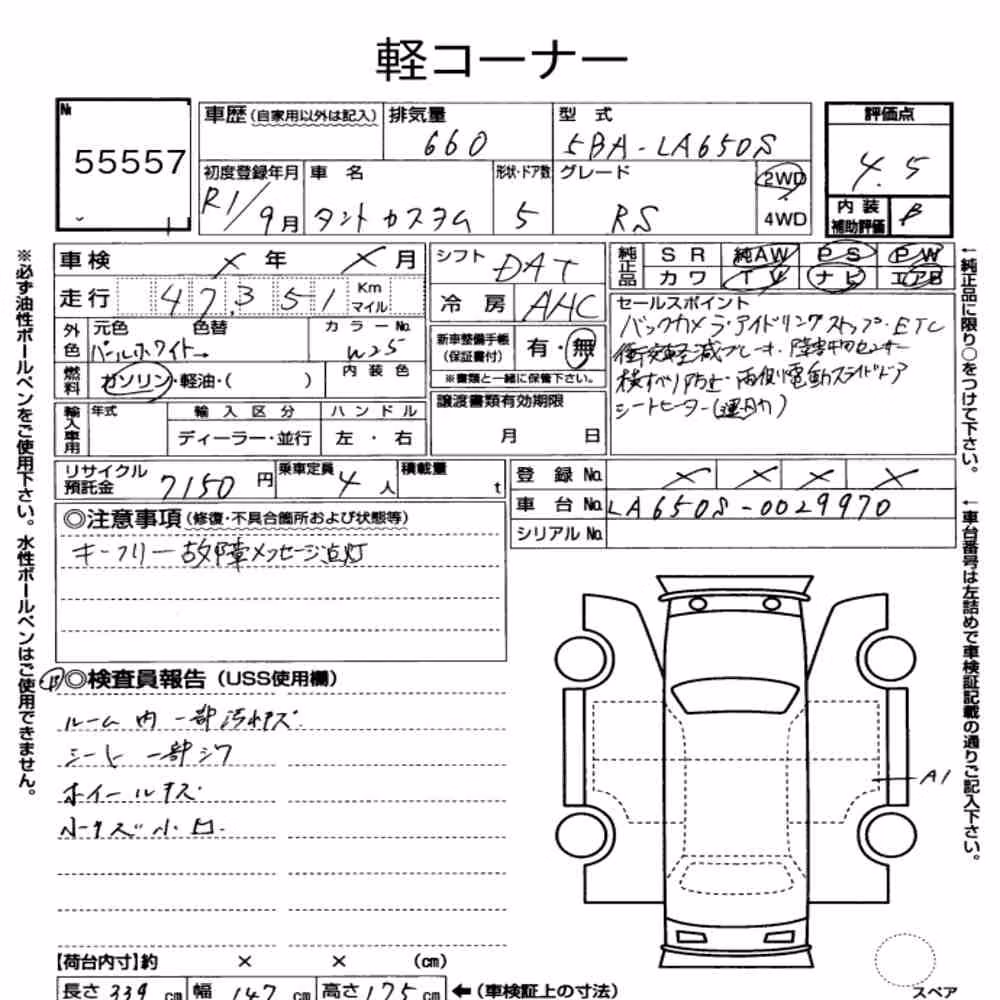 軽コーナー
№
55557
車歴 (自家用以外は記入)
排気量
660
型 式
5BA-LA650S
評価点
4.5
初度登録年月
R1/9月
車 名
タントカスタム
形状・ドア数
5
グレード
RS
2WD
4WD
内装
補助評価
B
車検 × 年 × 月
シフト
DAT
純正品
SR 純AW PS PW
カワ TV ナビ エアB
走行 47,351 Km
マイル
冷房 AAC
セールスポイント
バックカメラ・アイドリングストップ・ETC
衝突軽減ブレーキ・障害物センサー
横すべり防止・両側電動スライドドア
シートヒーター(運助)
外色
元色 色替
パールホワイト→
カラーNo.
W25
新車整備手帳
(保証書付)
有・無
※書類と一緒に保管下さい。
燃料
ガソリン・軽油・( )
内装色
輸入車用
年式
輸入区分
ハンドル
ディーラー・並行
左・右
譲渡書類有効期限
月 日
リサイクル
預託金
7150 円
乗車定員
4 人
積載量
t
登録 No. × × × ×
車台 No. LA650S-0029970
シリアル No.
◎注意事項 (修復・不具合箇所および状態等)
キーフリー故障メッセージ点灯
◎検査員報告 (USS使用欄)
ルーム内 一部汚れキズ.
シート 一部シワ
ホイールキズ.
小キズ小凹.
A1
【荷台内寸】約 × × (cm)
長さ 339 cm 幅 147 cm 高さ 175 cm
←(車検証上の寸法)
スペア
※必ず油性ボールペンをご使用下さい。水性ボールペンはご使用できません。
←純正品に限り○をつけて下さい。
←車台番号は左詰めで車検証記載の通りご記入下さい。